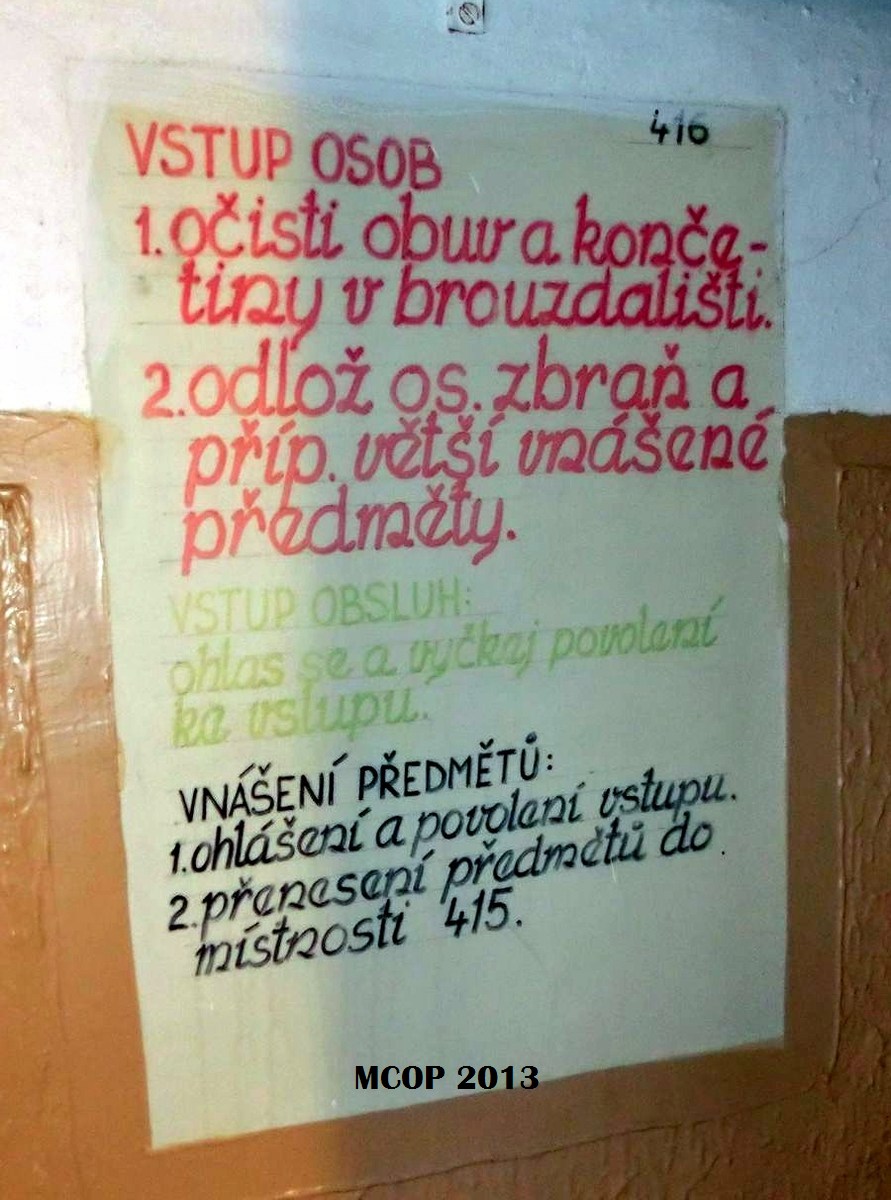 416
VSTUP OSOB
1. očisti obuv a konče-
tiny v brouzdališti.
2. odlož os. zbraň a
příp. větší vnášené
předměty.
VSTUP OBSLUH:
ohlas se a vyčkej povolení
ke vstupu.
VNÁŠENÍ PŘEDMĚTŮ:
1. ohlášení a povolení vstupu.
2. přenesení předmětů do
místnosti 415.
MCOP 2013